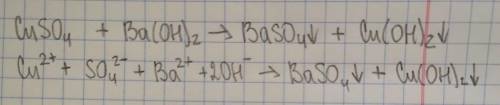 CuSO₄ + Ba(OH)₂ → BaSO₄↓ + Cu(OH)₂↓
Cu²⁺ + SO₄²⁻ + Ba²⁺ + 2OH⁻ → BaSO₄↓ + Cu(OH)₂↓